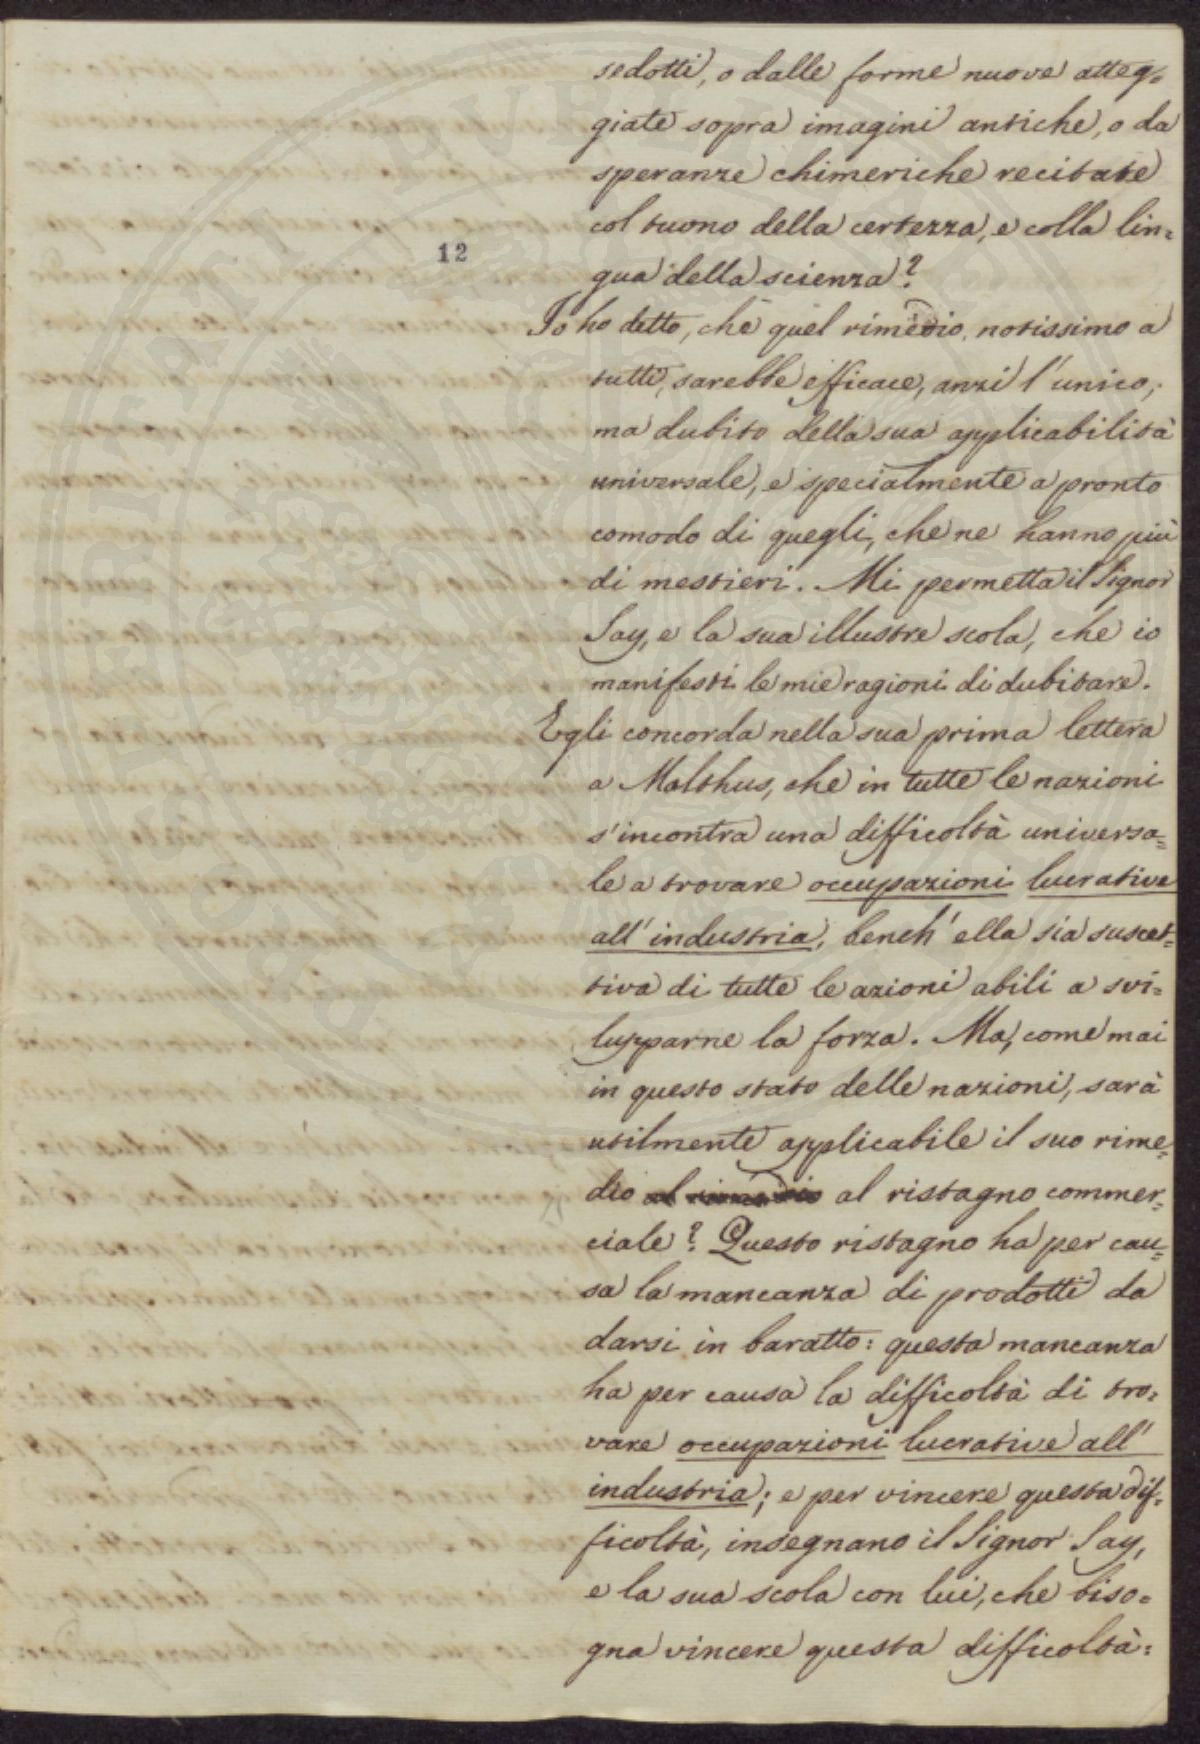 sedotti, o dalle forme nuove atteg=
giate sopra imagini antiche, o da
speranze chimeriche recitate
col tuono della certezza, e colla lin=
12
gua della scienza?
Io ho detto, che quel rimedio, notissimo a
tutti, sarebbe efficace, anzi l'unico;
ma dubito della sua applicabilità
universale, e specialmente a pronto
comodo di quegli, che ne hanno più
di mestieri. Mi permetta il Signor
Say, e la sua illustre scola, che io
manifesti le mie ragioni di dubitare.
Egli concorda nella sua prima lettera
a Malthus, che in tutte le nazioni
s'incontra una difficoltà universa=
le a trovare occupazioni lucrative
all'industria, bench'ella sia suscet=
tiva di tutte le azioni abili a svi=
lupparne la forza. Ma, come mai
in questo stato delle nazioni, sarà
utilmente applicabile il suo rime=
dio al ristagno commer=
ciale? Questo ristagno ha per cau=
sa la mancanza di prodotti da
darsi in baratto: questa mancanza
ha per causa la difficoltà di tro=
vare occupazioni lucrative all'
industria; e per vincere questa dif=
ficoltà, insegnano il Signor Say,
e la sua scola con lui, che biso=
gna vincere questa difficoltà: